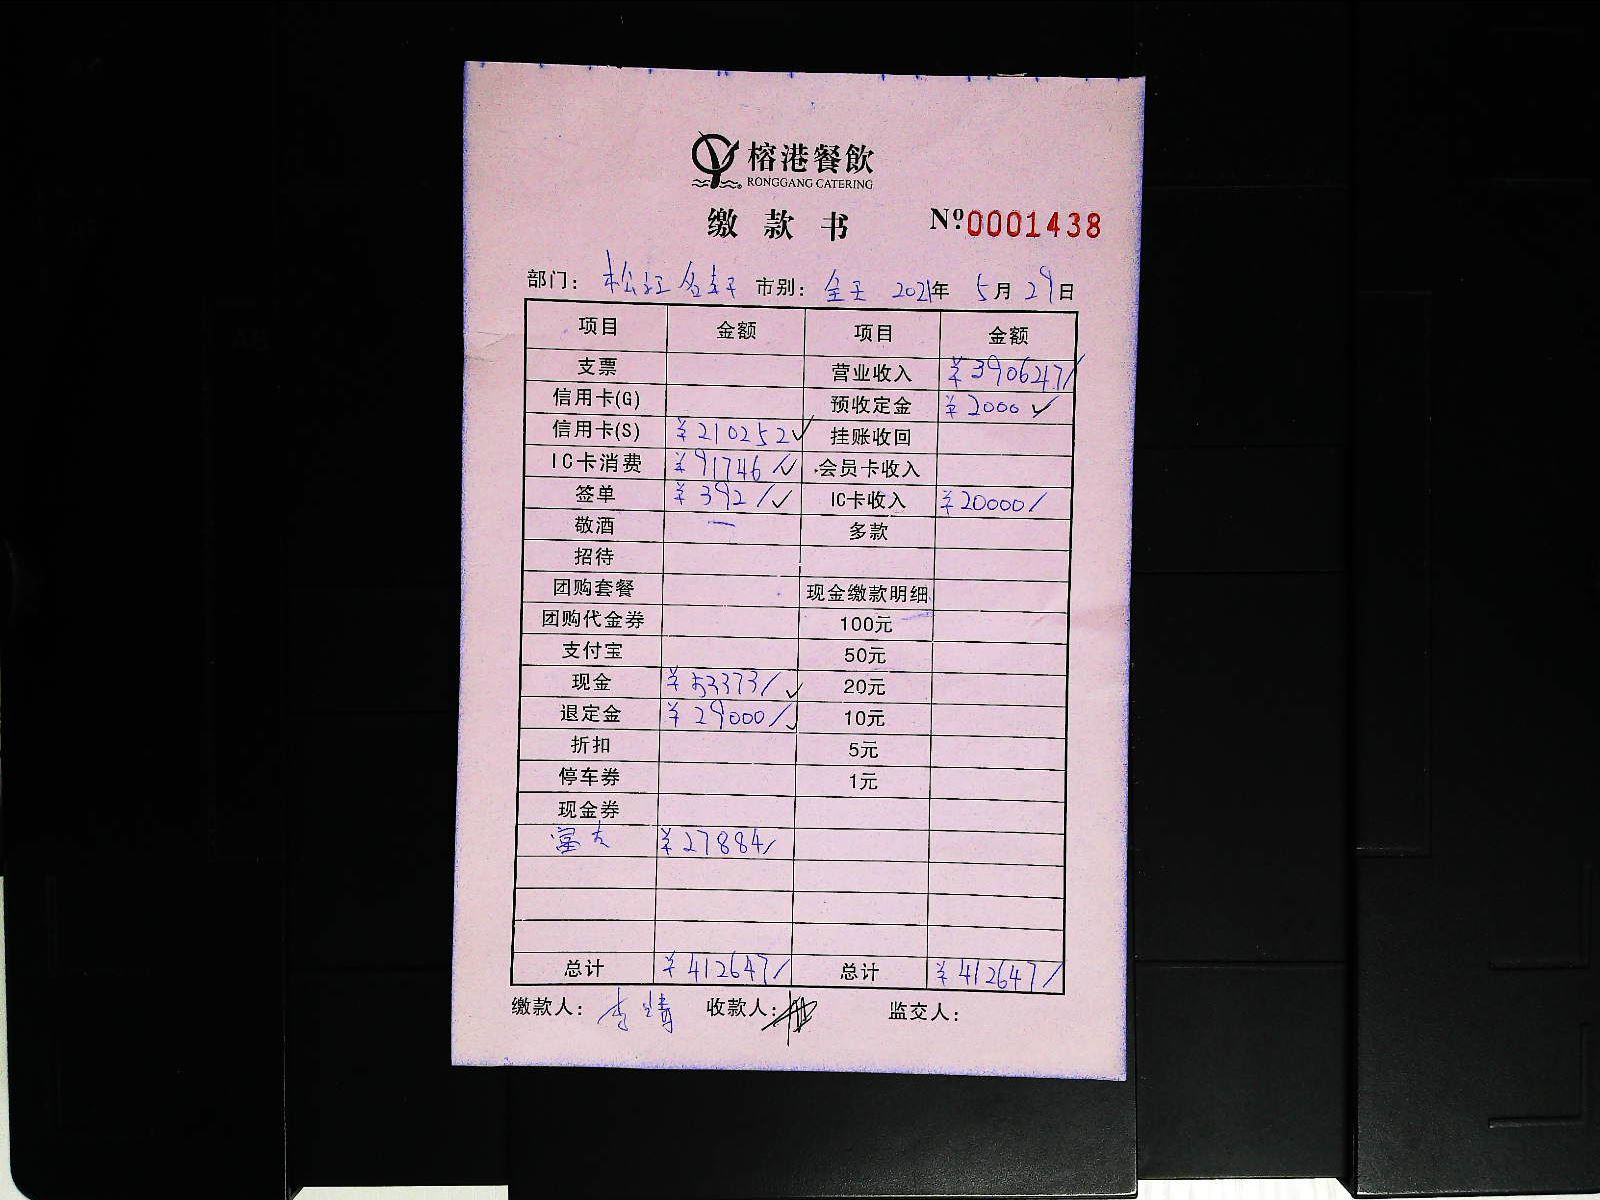 榕港餐飲
RONGGANG CATERING
缴款书 Nº0001438
部门： 松江名轩 市别： 全天 2021年 5月 29日
项目 金额 项目 金额
支票 营业收入 ¥390647/
信用卡(G) 预收定金 ¥2000 ✓
信用卡(S) ¥210252 ✓ 挂账收回
IC卡消费 ¥91746/ ✓ 会员卡收入
签单 ¥392/ ✓ IC卡收入 ¥20000/
敬酒 — 多款
招待
团购套餐 现金缴款明细
团购代金券 100元
支付宝 50元
现金 ¥53373/ ✓ 20元
退定金 ¥29000/ ✓ 10元
折扣 5元
停车券 1元
现金券
富友 ¥27884/
总计 ¥412647/ 总计 ¥412647/
缴款人： 李 收款人： 监交人：